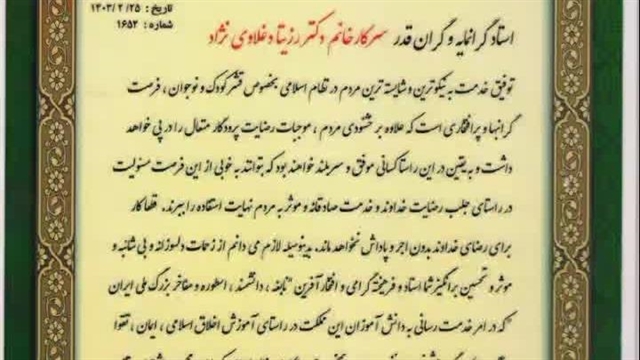 تاریخ : ۱۴۰۳/۲/۲۵
شماره : ۱۶۵۲
استاد گرانمایه و گران قدر سرکار خانم دکتر رزیتا دغلاوی نژاد
توفیق خدمت به نیکوترین و شایسته ترین مردم در نظام اسلامی بخصوص قشر کودک و نوجوان ، فرصت
گرانبها و پرافتخاری است که علاوه بر خشنودی مردم ، موجبات رضایت پروردگار متعال را در پی خواهد
داشت و به یقین در این راستا کسانی موفق و سربلند خواهند بود که بتوانند به خوبی از این فرصت مسئولیت
در راستای جلب رضایت خداوند و خدمت صادقانه و موثر به مردم نهایت استفاده را ببرند. قطعا کار
برای رضای خداوند بدون اجر و پاداش نخواهد ماند. بدینوسیله لازم می دانم از زحمات دلسوزانه و بی شائبه و
موثر و تحسین برانگیز شما استاد و فرهیخته گرامی و افتخار آفرین "نابغه ، دانشمند ، اسطوره و مفاخر بزرگ ملی ایران
" که در امر خدمت رسانی به دانش آموزان این مملکت در راستای آموزش اخلاق اسلامی ، ایمان ، تقوا